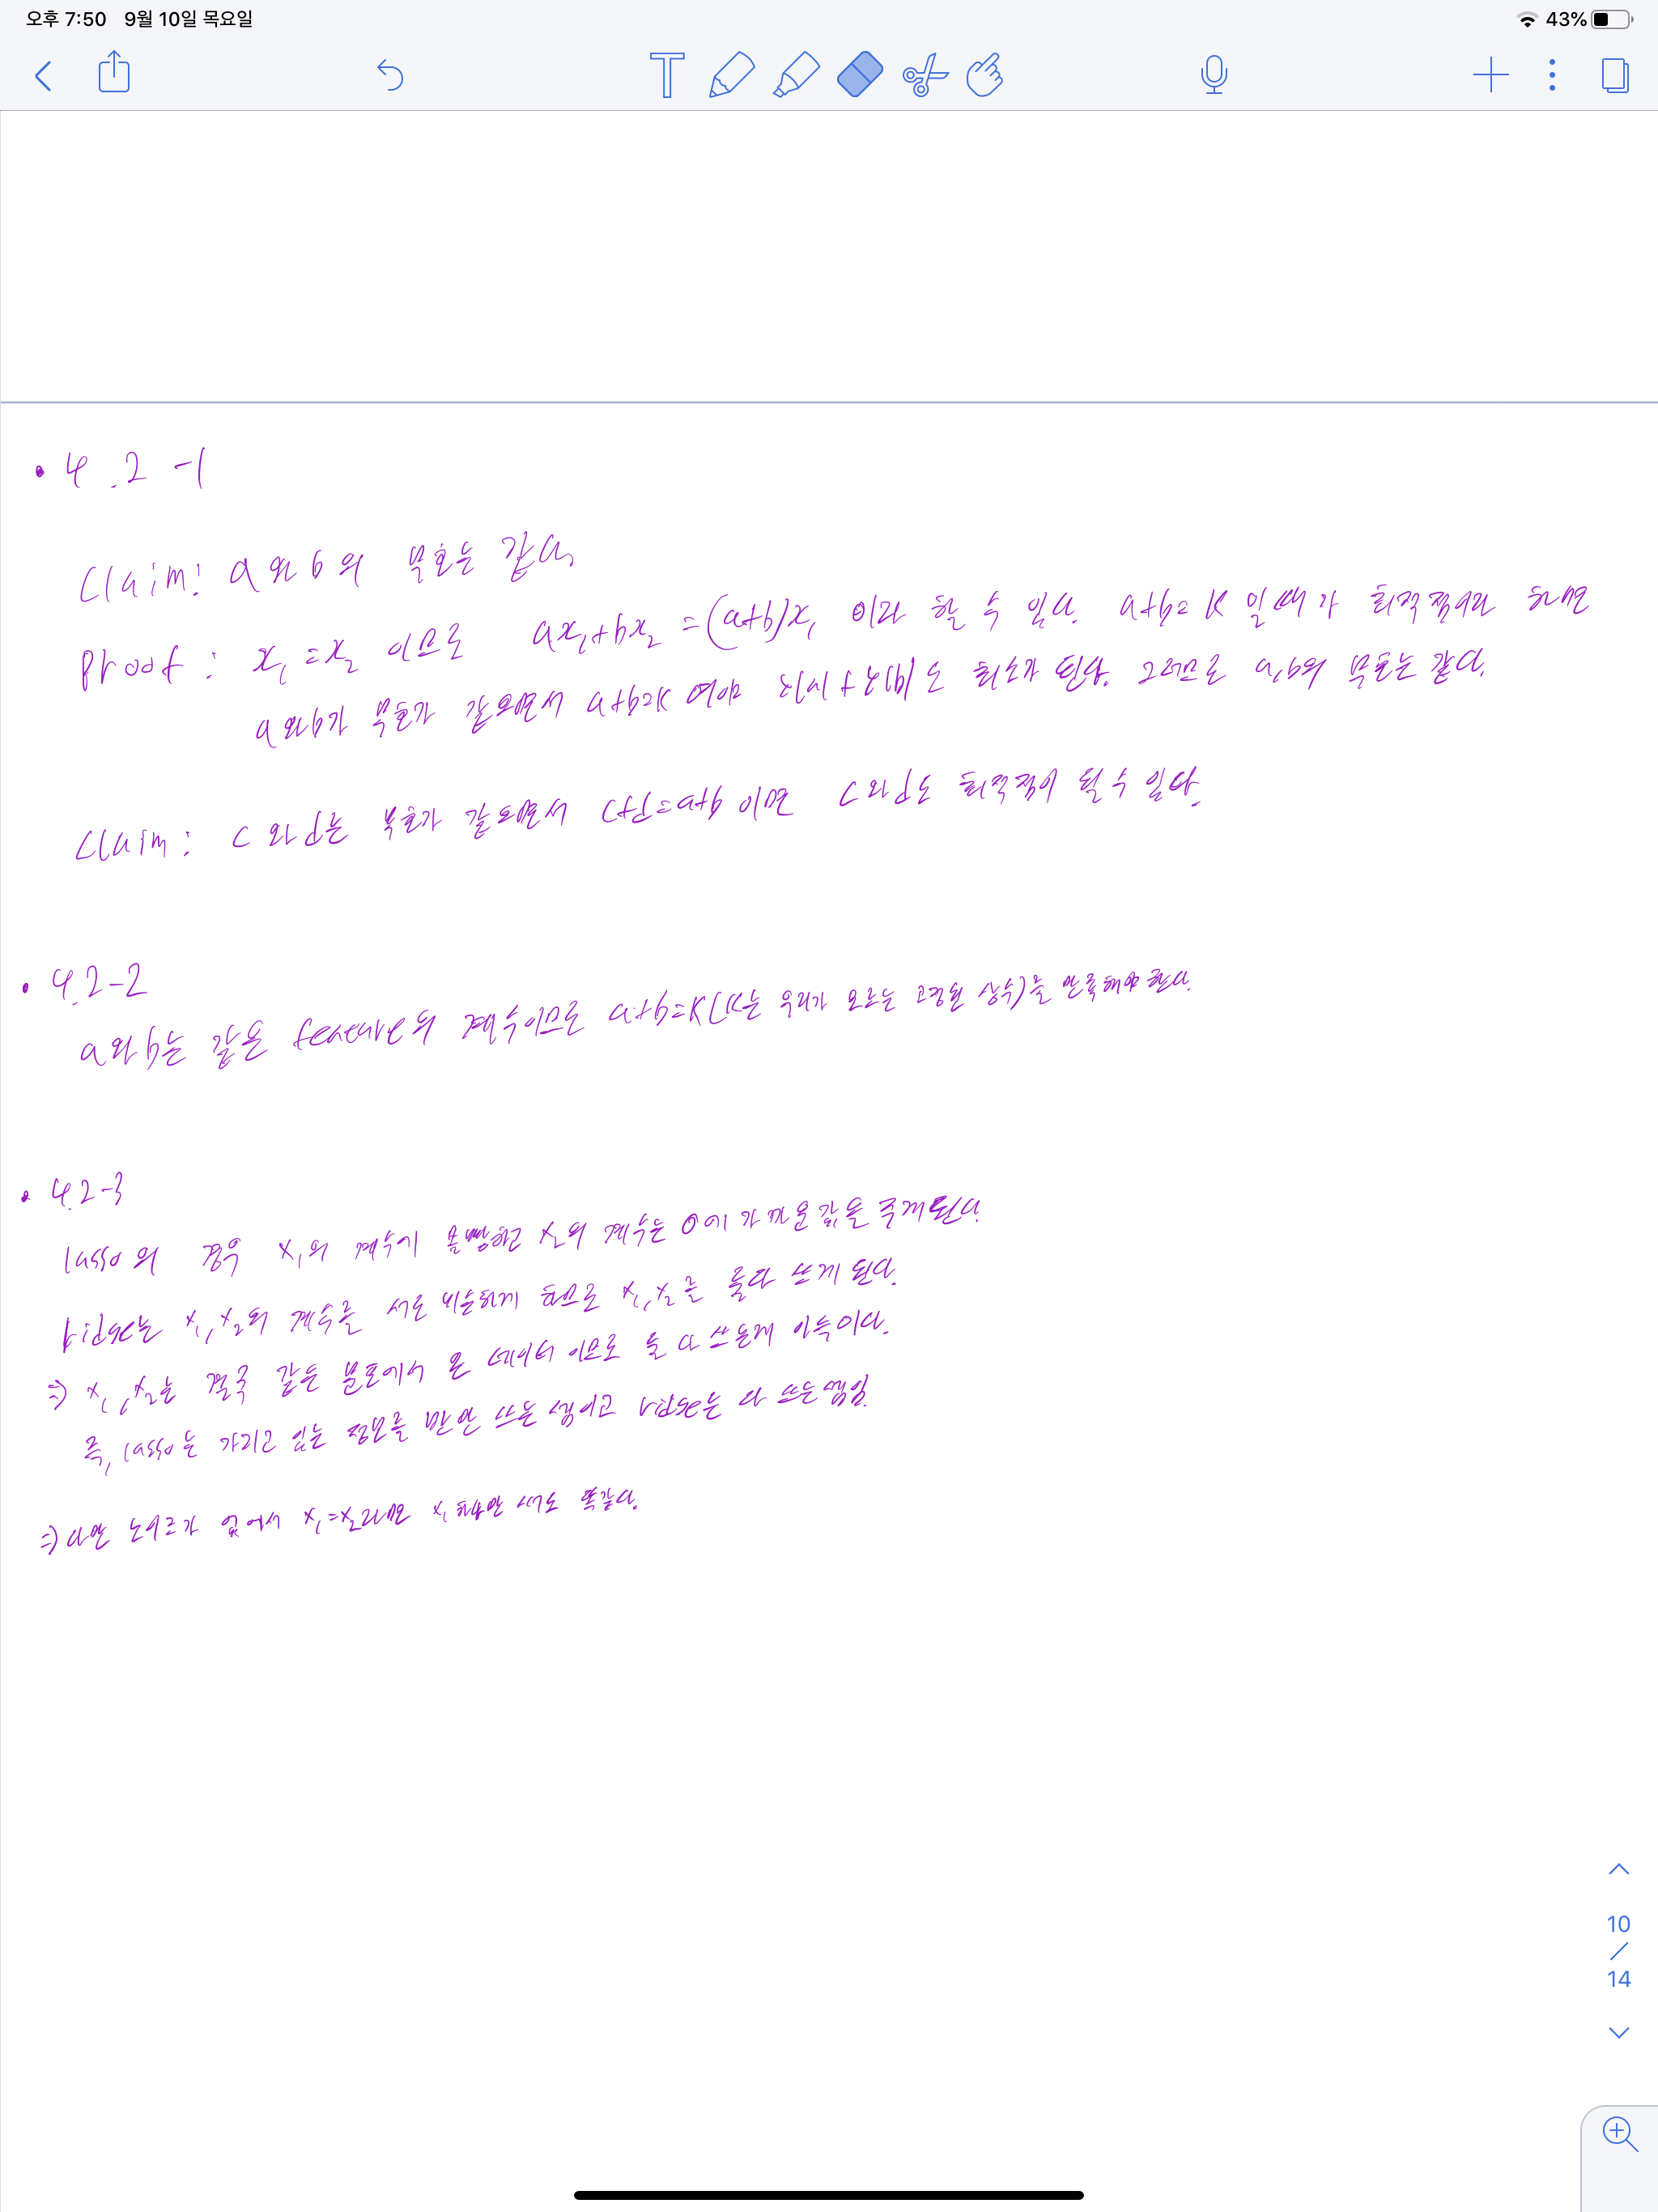 오후 7:50 9월 10일 목요일
43%
• 4.2-1
Claim: a와 b의 부호는 같다.
Proof: x₁=x₂ 이므로 ax₁+bx₂=(a+b)x₁ 이라 할 수 있다. a+b=K 일때가 최적점이라 하면
a와b가 부호가 같으면서 a+b=K 여야 λ|a|+λ|b|도 최소가 된다. 그러므로 a,b의 부호는 같다.
Claim: c와d는 부호가 같으면서 c+d=a+b이면 c와d도 최적점이 될 수 있다.
• 4.2-2
a와 b는 같은 feature의 계수이므로 a+b=K(K는 우리가 모르는 고정된 상수)를 만족해야 한다.
• 4.2-3
lasso의 경우 x₁의 계수에 몰빵하고 x₂의 계수는 0에 가까운 값을 주게된다.
ridge는 x₁,x₂의 계수를 서로 비슷하게 하므로 x₁,x₂를 둘다 쓰게 된다.
⇒ x₁,x₂는 결국 같은 분포에서 온 데이터 이므로 둘 다 쓰는게 이득이다.
즉, lasso는 가지고 있는 정보를 반만 쓰는 셈이고 ridge는 다 쓰는셈임.
⇒ 다만 노이즈가 없어서 x₁=x₂라면 x₁ 하나만 써도 똑같다.
10
/
14